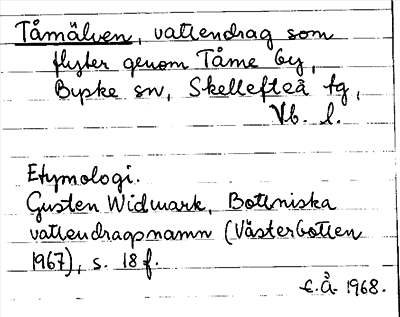 Tåmälven, vattendrag som
flyter genom Tåme by,
Byske sn, Skellefteå tg,
Vb. l.
Etymologi.
Gusten Widmark, Bottniska
vattendragsnamn (Västerbotten
1967), s. 18 f.
E.Å. 1968.